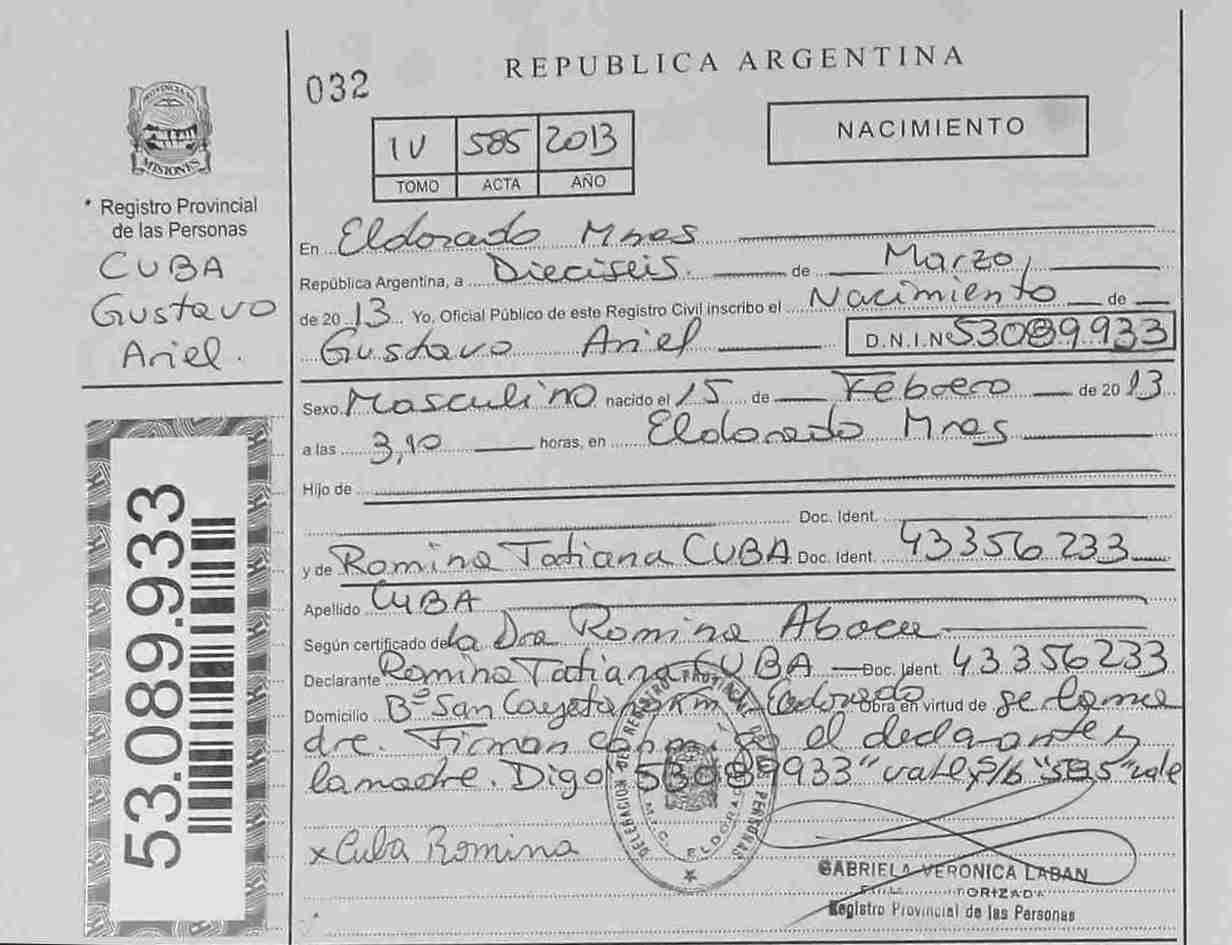 032
REPUBLICA ARGENTINA
IV 585 2013
TOMO ACTA AÑO
NACIMIENTO
PROVINCIA DE
MISIONES
* Registro Provincial
de las Personas
CUBA
Gustavo
Ariel.
53.089.933
En Eldorado Mnes
República Argentina, a Dieciseis. de Marzo,
de 2013 Yo. Oficial Público de este Registro Civil inscribo el Nacimiento de
Gustavo Ariel D.N.I.Nº 53089.933
Sexo Masculino nacido el 15 de Febrero de 2013
a las 3,10 horas, en Eldorado Mnes
Hijo de
Doc. Ident.
y de Romina Tatiana CUBA Doc. Ident. 43356233
Apellido CUBA
Según certificado de la Dra Romina
Declarante Romina Tatiana CUBA Doc. Ident. 43.356233
Domicilio Bº San Cayetano Km Eldorado Obra en virtud de ser la ma
dre. Firman conmigo el declarante y
la madre. Digo "53089933" vale, s/b "585" vale
x Cuba Romina
DELEGACION DEL REGISTRO PROVINCIAL DE LAS PERSONAS
ELDORADO
GABRIELA VERONICA LABAN
Registro Provincial de las Personas